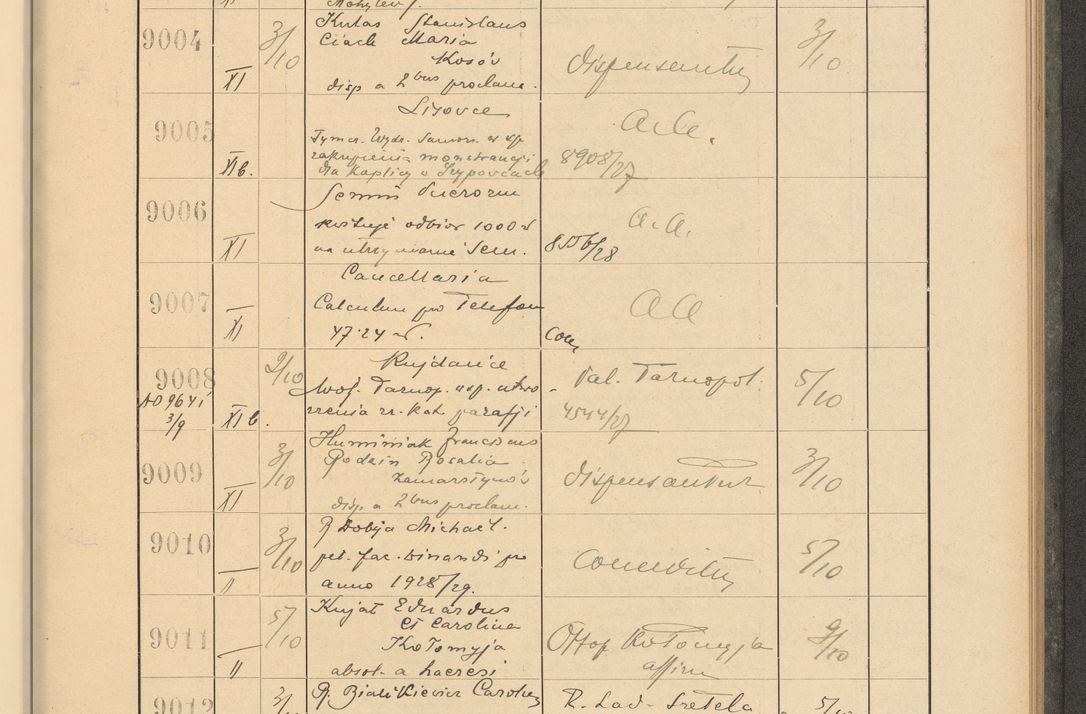 9004 XI 3/10 Kutas Stanislaus 3/10
Ciach Maria
Kosów dispensentur
disp a 2bus proclam.
9005 XIb. Lisowce a.a.
Tymcz. Wydz. Samorz. w sp.
zakupienia monstrancji 8908/27
dla kaplicy w Szypowcach
9006 XI Semin Puerorum a.a.
kwituje odbiór 1000 zł
na utrzymanie Sem. 8556/28
9007 XI Cancellaria aa
Calculum pro Telefon
47.24 zł.
9008 2/10 Rujdance
AD 9641 Woj. Tarnop. w sp. utwo- Pal. Tarnopol. 5/10
3/9 XI b. rzenia rz. kat. parafji 4544/27
9009 XI 3/10 Huminiak Franciscus
Rosalia
Zamarstynów dispensantur 3/10
disp a 2bus proclam.
9010 II 3/10 R Dobija Michael.
pet. fac. binandi pro conceditur 5/10
anno 1928/29.
9011 II 5/10 Kujat Eduardus
et Carolina
Kołomyja Off Kołomyja 9/10
absol. a haeresi affirm
9012 3/ R. Białikiewicz Carolus R. Lad. 5/